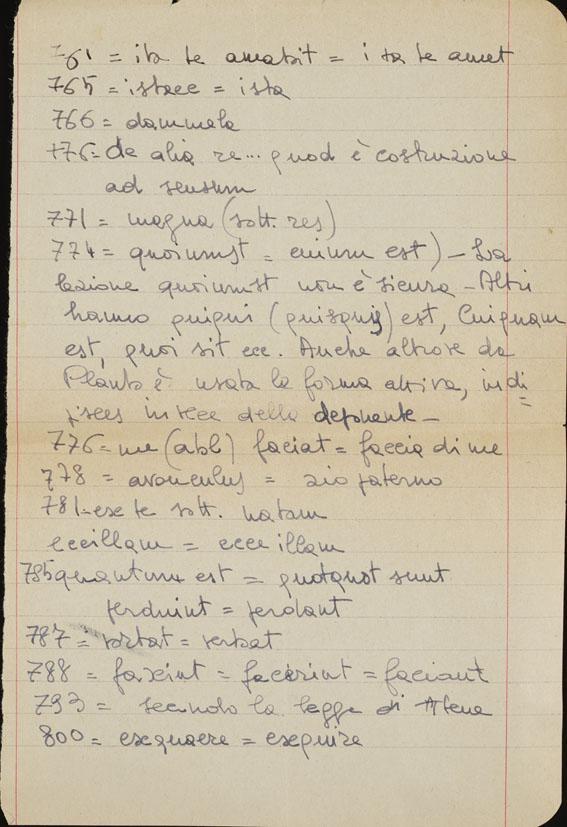 761 = ita te amabit = ita te amet
765 = istaec = ista
766 = dammela
776 = de alia re... quod è costruzione
ad sensum
771 = magna (sott. res)
774 = quoiumst = cuium est) - La
lezione quoiumst non è sicura - Altri
hanno quiqui (quisquis) est, Cuiqnam
est, quoi sit ecc. Anche altrove da
Plauto è usata la forma attiva, in di
invece della deponente -
776 = me (abl) faciat = faccia di me
778 = avonculus = zio paterno
781 - exe te sott. natam
eccillam = ecce illam
785 quantum est = quotquot sunt
perduint = perdant
787 = vortat = vertat
788 = faxint = fecerint = faciant
793 = secondo la legge di Atene
800 = exequaere = eseguire